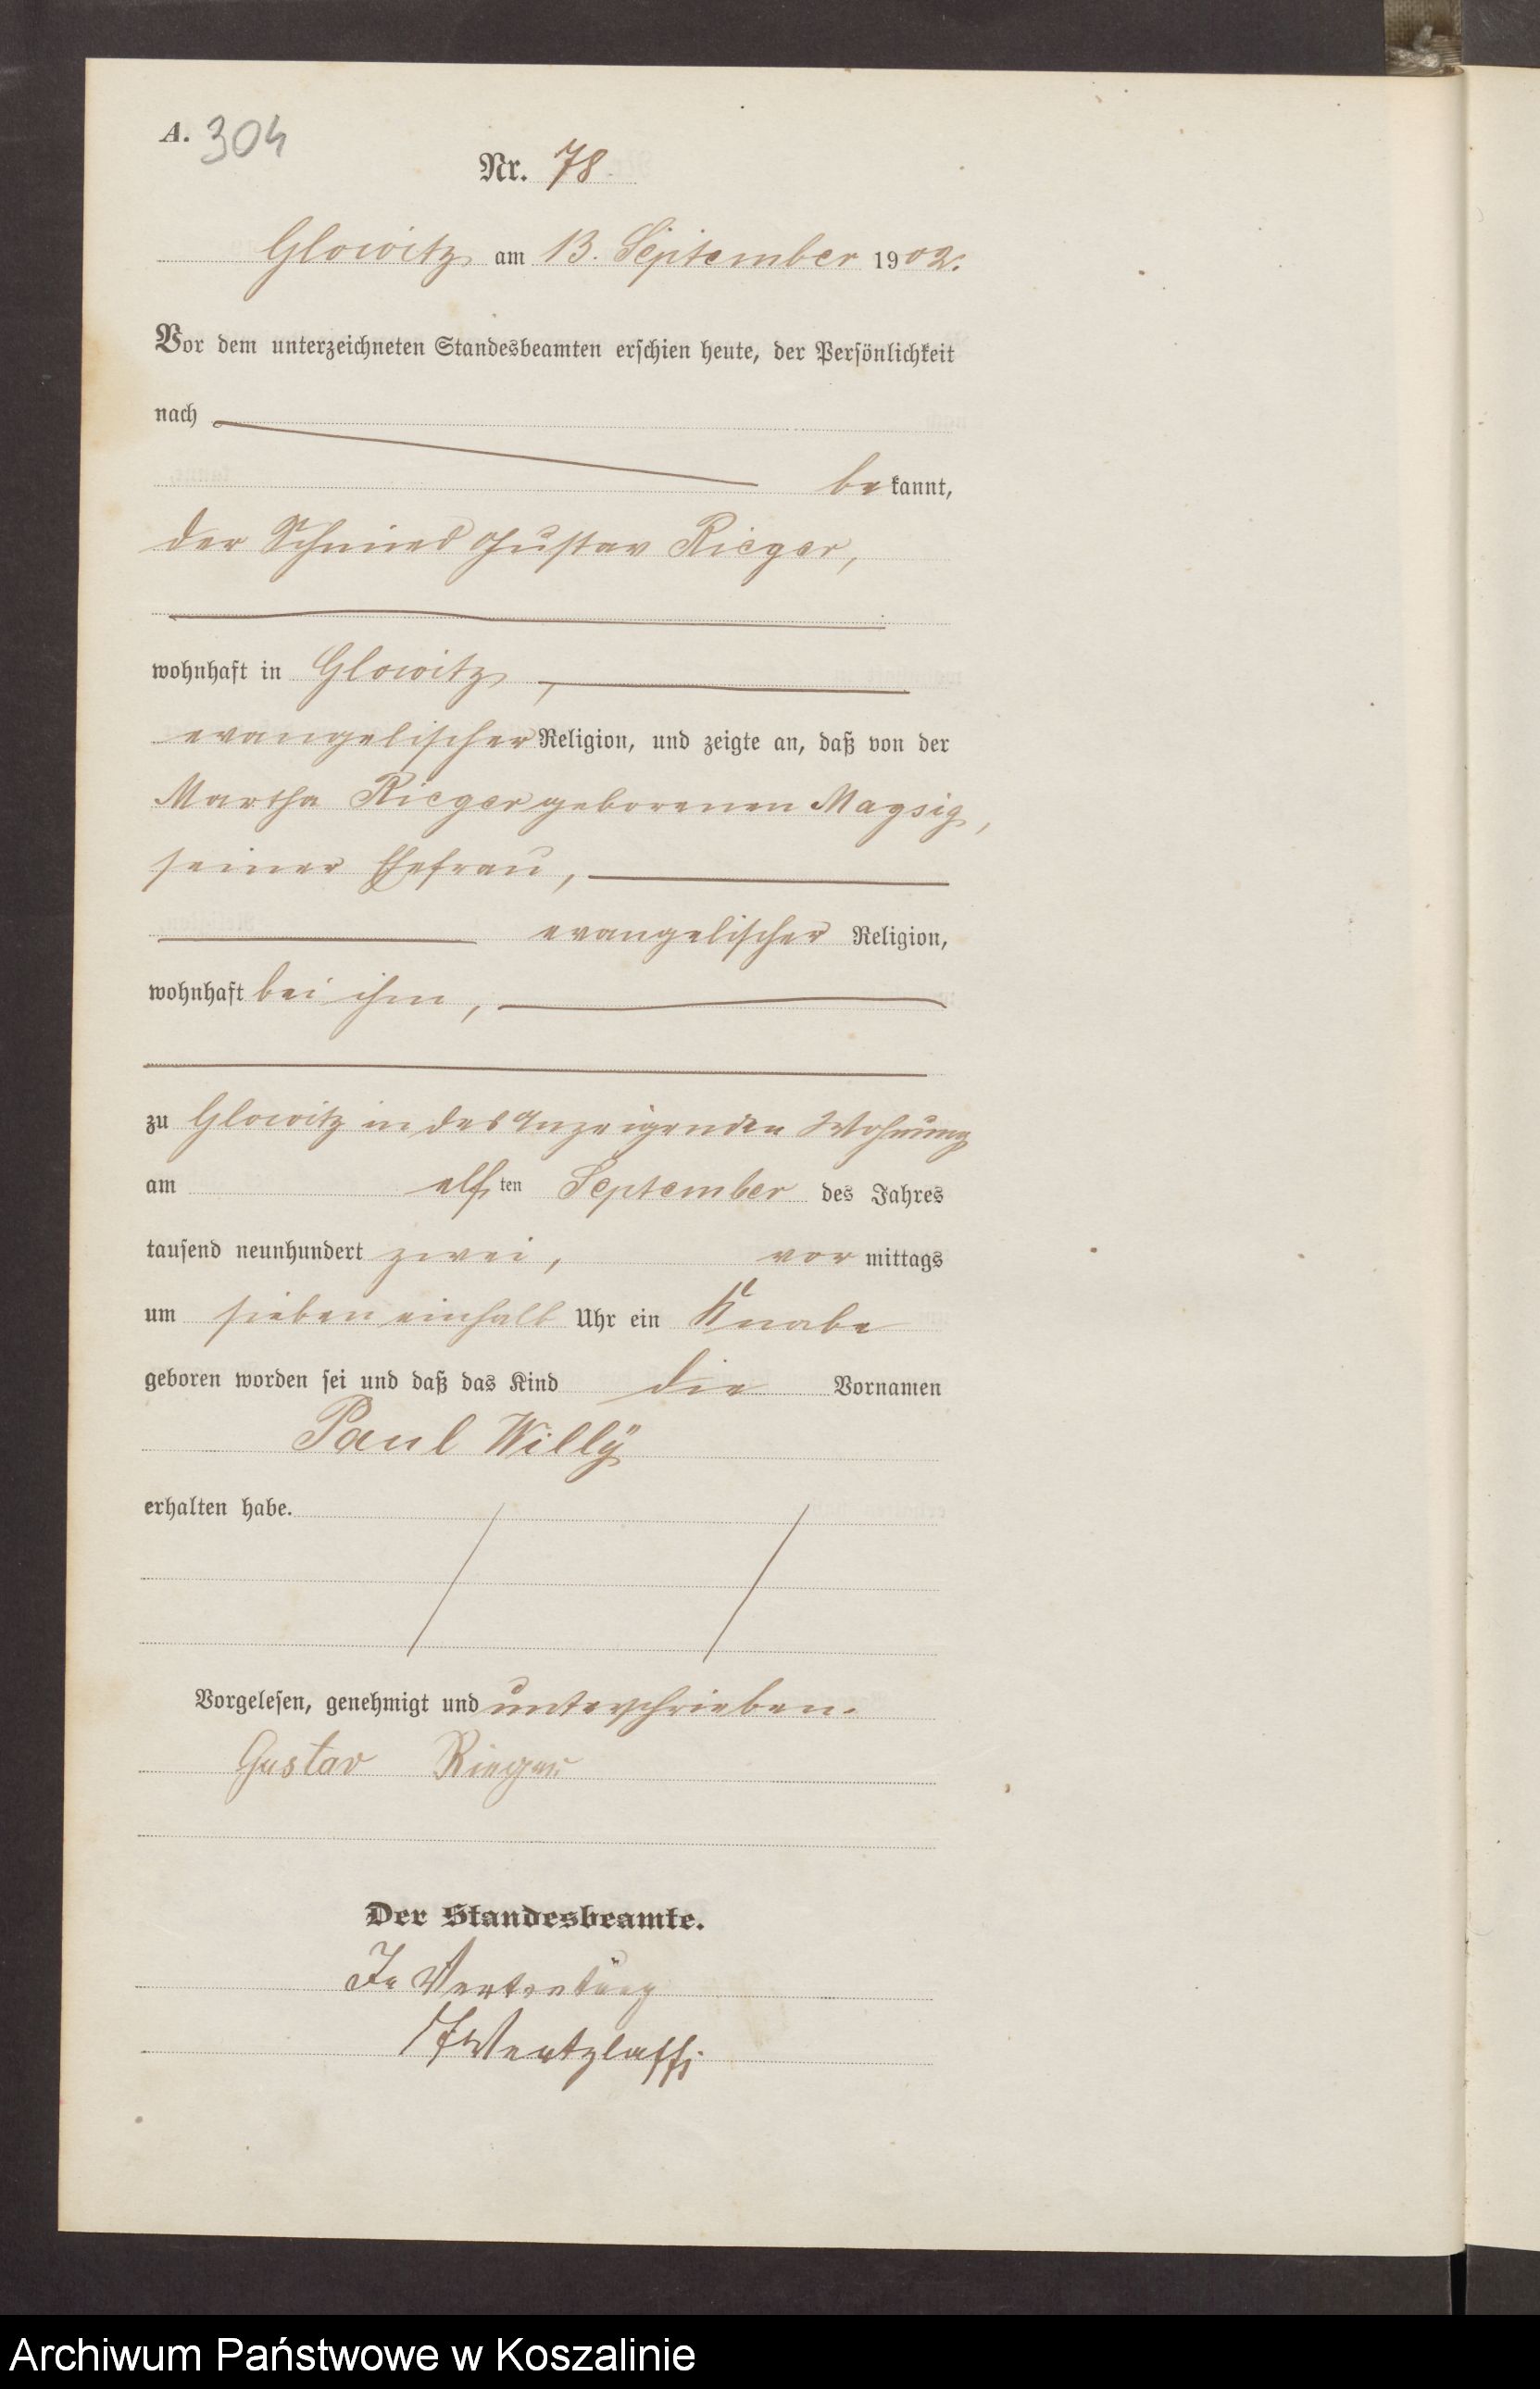 A. 304
Nr. 78.
Glowitz am 13. September 1902.
Vor dem unterzeichneten Standesbeamten erschien heute, der Persönlichkeit
nach
bekannt,
der Schmied Gustav Rieger,
wohnhaft in Glowitz,
evangelischer Religion, und zeigte an, daß von der
Martha Rieger geborenen Magsig,
seiner Ehefrau,
evangelischer Religion,
wohnhaft bei ihm,
zu Glowitz in des Anzeigenden Wohnung
am elften September des Jahres
tausend neunhundert zwei, vormittags
um sieben einhalb Uhr ein Knabe
geboren worden sei und daß das Kind die Vornamen
Paul Willÿ
erhalten habe.
Vorgelesen, genehmigt und unterschrieben.
Gustav Rieger
Der Standesbeamte.
In Vertretung
Wentzlaff
Archiwum Państwowe w Koszalinie